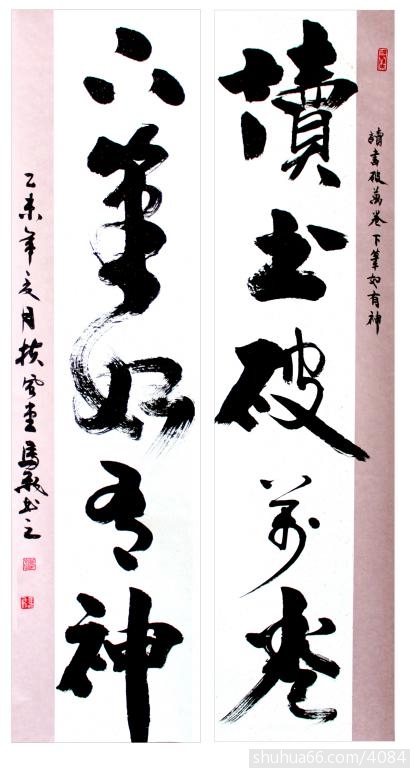 讀书破萬卷
下筆如有神
讀書破萬卷下筆如有神
乙未年之月扶風堂馬戬书之
shuhua66.com/4084